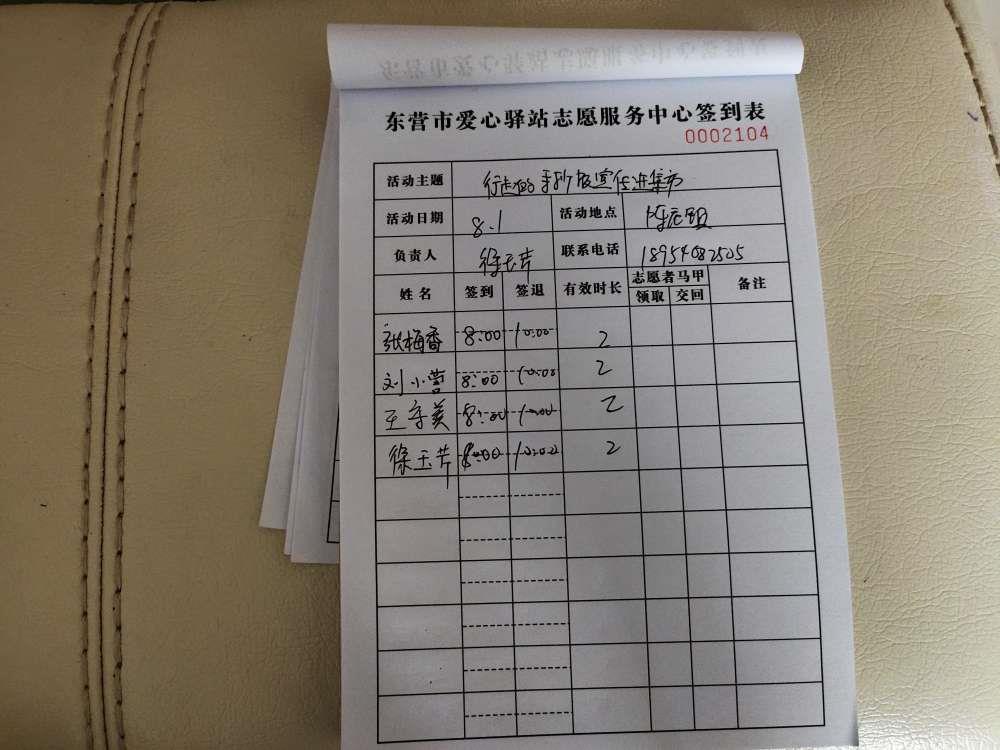 东营市爱心驿站志愿服务中心签到表
0002104
活动主题 行走的手抄报宣传进集市
活动日期 8.1 活动地点
负责人 徐玉芹 联系电话 18954082505
姓名 签到 签退 有效时长 志愿者马甲 领取 交回 备注
张梅香 8:00 10:00 2
刘小营 8:00 10:00 2
王守美 8:00 10:00 2
徐玉芹 8:00 10:00 2